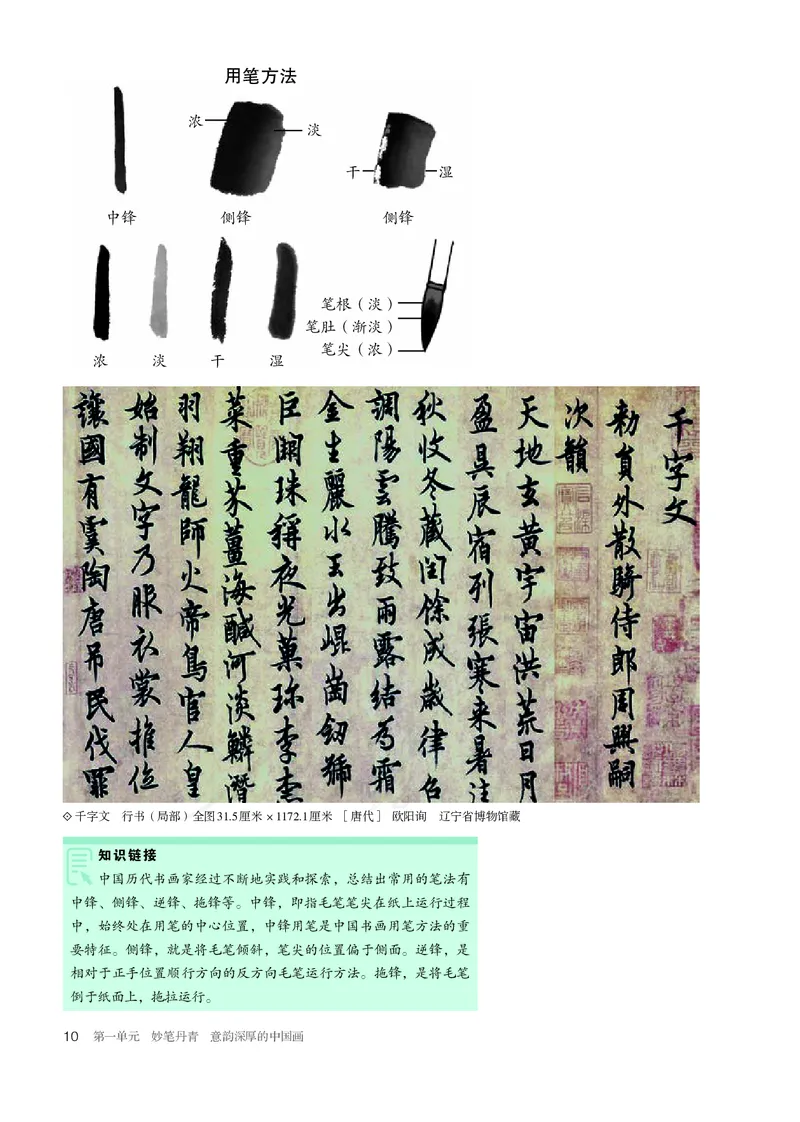 用笔方法
浓
淡
干
湿
中锋
侧锋
侧锋
浓
淡
干
湿
笔根（淡）
笔肚（渐淡）
笔尖（浓）
千字文
勅員外散騎侍郎周興嗣
次韻
天地玄黃宇宙洪荒日月
盈昃辰宿列張寒来暑往
秋收冬藏閏餘成歲律吕
調陽雲騰致雨露結為霜
金生麗水玉出崐崗劒號
巨闕珠稱夜光菓珎李柰
菜重芥薑海醎河淡鱗潛
羽翔龍師火帝鳥官人皇
始制文字乃服衣裳推位
讓國有虞陶唐吊民伐罪
千字文　行书（局部）全图31.5厘米×1172.1厘米　［唐代］　欧阳询　辽宁省博物馆藏
知识链接
中国历代书画家经过不断地实践和探索，总结出常用的笔法有
中锋、侧锋、逆锋、拖锋等。中锋，即指毛笔笔尖在纸上运行过程
中，始终处在用笔的中心位置，中锋用笔是中国书画用笔方法的重
要特征。侧锋，就是将毛笔倾斜，笔尖的位置偏于侧面。逆锋，是
相对于正手位置顺行方向的反方向毛笔运行方法。拖锋，是将毛笔
倒于纸面上，拖拉运行。
10　第一单元　妙笔丹青　意韵深厚的中国画